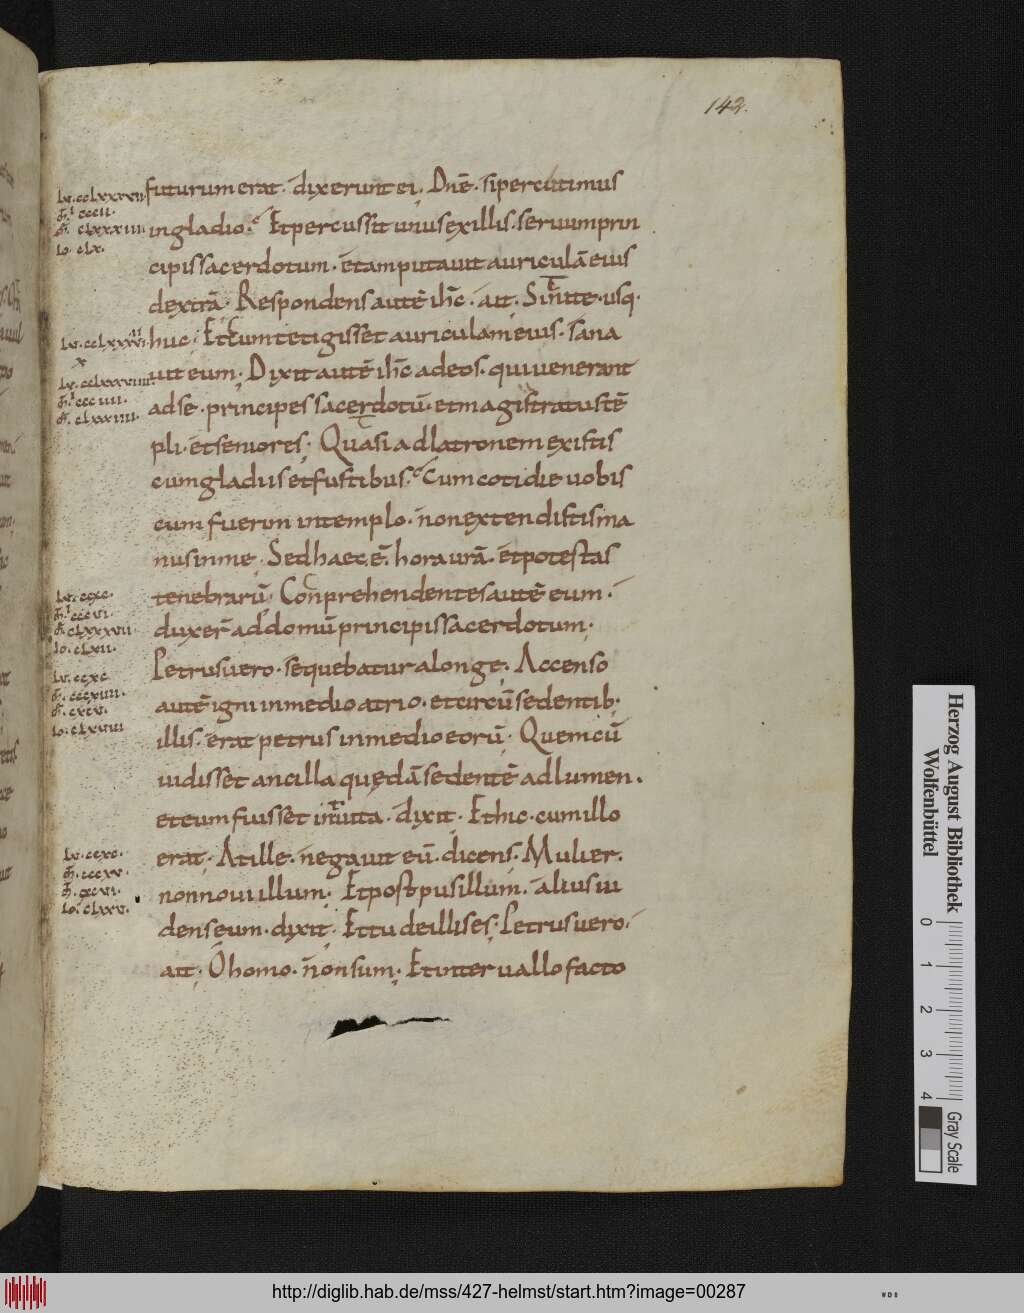 142.
Lu. cclxxxvii
M. cccii.
M. clxxxiiii.
Io. clx.
futurum erat. dixerunt ei. Dnē. si percutimus
in gladio. Et percussit unus ex illis. seruum prin
cipis sacerdotum. et amputauit auriculā eius
dextrā. Respondens autē ihc̄. ait. Sinite. usq·
huc. Et cum tetigisset auriculam eius. sana
uit eum. Dixit autē ihc̄ ad eos. qui uenerant
ad se. principes sacerdotū. et magistratus tē
pli. et seniores. Quasi ad latronem existis
cum gladiis et fustibus. Cum cotidie uobis
cum fuerim in templo. non extendistis ma
nus in me. Sed haec ē. hora urā. et potestas
tenebrarū. Conprehendentes autē eum.
duxer̄ ad domū principis sacerdotum.
Petrus uero. sequebatur a longe. Accenso
autē igni in medio atrio. et circū sedentib·
illis. erat petrus in medio eorū. Quem cū
uidisset ancilla quędā sedentē ad lumen.
et eum fuisset intuita. dixit. Et hic. cum illo
erat. At ille. negauit eū. dicens. Mulier.
non noui illum. Et post pusillum. alius ui
dens eum. dixit. Et tu de illis es. Petrus uero.
ait. O homo. non sum. Et interuallo facto
Lu. ccxc.
M. cccvi.
M. clxxxvii
Io. clxii.
Lu. ccxc
M. cccxiiii.
M. cxcv.
Io. clxviii
Lu. ccxc.
M. cccxv.
Io. clxxv.
Herzog August Bibliothek
Wolfenbüttel
0 1 2 3 4
Gray Scale
http://diglib.hab.de/mss/427-helmst/start.htm?image=00287